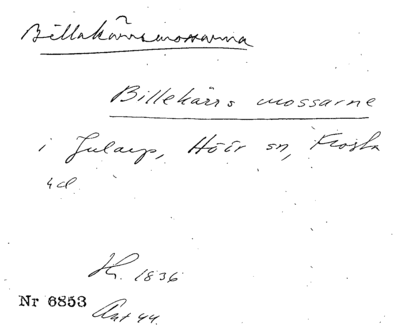 Billakärrsmossarna
Billekärrs mossarne
i Julaup, Höör sn, Frosta
hd
H. 1836
Nr 6853
Ant 44.